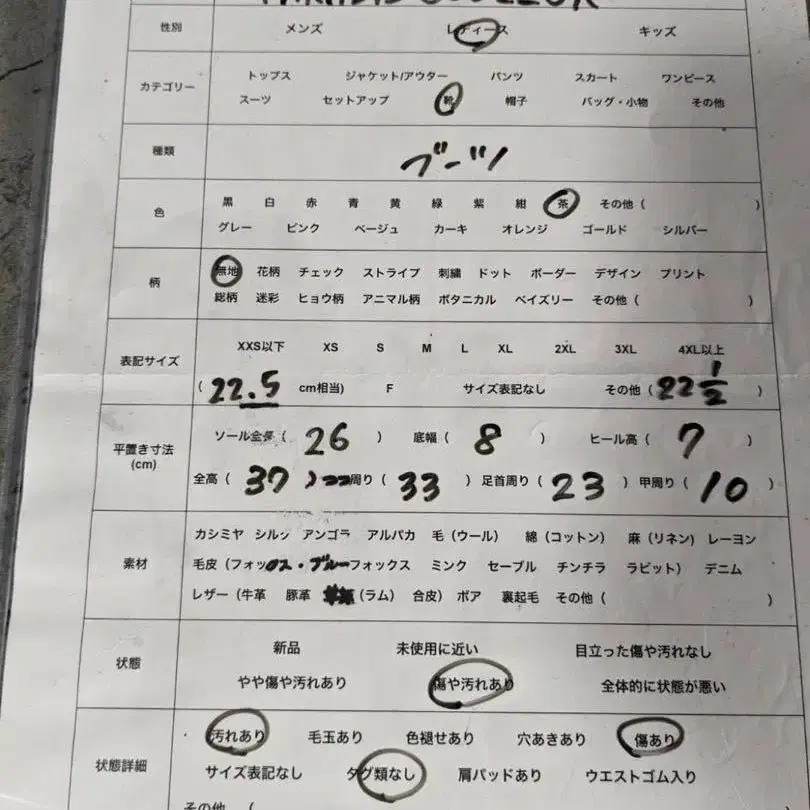 性別 メンズ レディース キッズ
カテゴリー トップス ジャケット/アウター パンツ スカート ワンピース
スーツ セットアップ 靴 帽子 バッグ・小物 その他
種類 ブーツ
色 黒 白 赤 青 黄 緑 紫 紺 茶 その他 ( )
グレー ピンク ベージュ カーキ オレンジ ゴールド シルバー
柄 無地 花柄 チェック ストライプ 刺繍 ドット ボーダー デザイン プリント
総柄 迷彩 ヒョウ柄 アニマル柄 ボタニカル ペイズリー その他 ( )
表記サイズ XXS以下 XS S M L XL 2XL 3XL 4XL以上
( 22.5 cm相当) F サイズ表記なし その他 ( 22 1/2 )
平置き寸法 (cm) ソール全長 ( 26 ) 底幅 ( 8 ) ヒール高 ( 7 )
全高 ( 37 ) 周り ( 33 ) 足首周り ( 23 ) 甲周り ( 10 )
素材 カシミヤ シルク アンゴラ アルパカ 毛 (ウール) 綿 (コットン) 麻 (リネン) レーヨン
毛皮 (フォックス・ブルーフォックス ミンク セーブル チンチラ ラビット) デニム
レザー (牛革 豚革 (ラム) 合皮) ボア 裏起毛 その他 ( )
状態 新品 未使用に近い 目立った傷や汚れなし
やや傷や汚れあり 傷や汚れあり 全体的に状態が悪い
状態詳細 汚れあり 毛玉あり 色褪せあり 穴あきあり 傷あり
サイズ表記なし タグ類なし 肩パッドあり ウエストゴム入り
その他 (